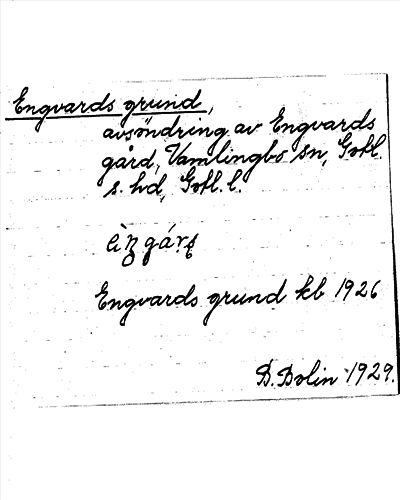 Engvards grund,
avsöndring av Engvards
gård, Vamlingbo sn, Gotl.
s. hd, Gotl. l.
Engvards grund kb 1926
D. Bolin 1929.